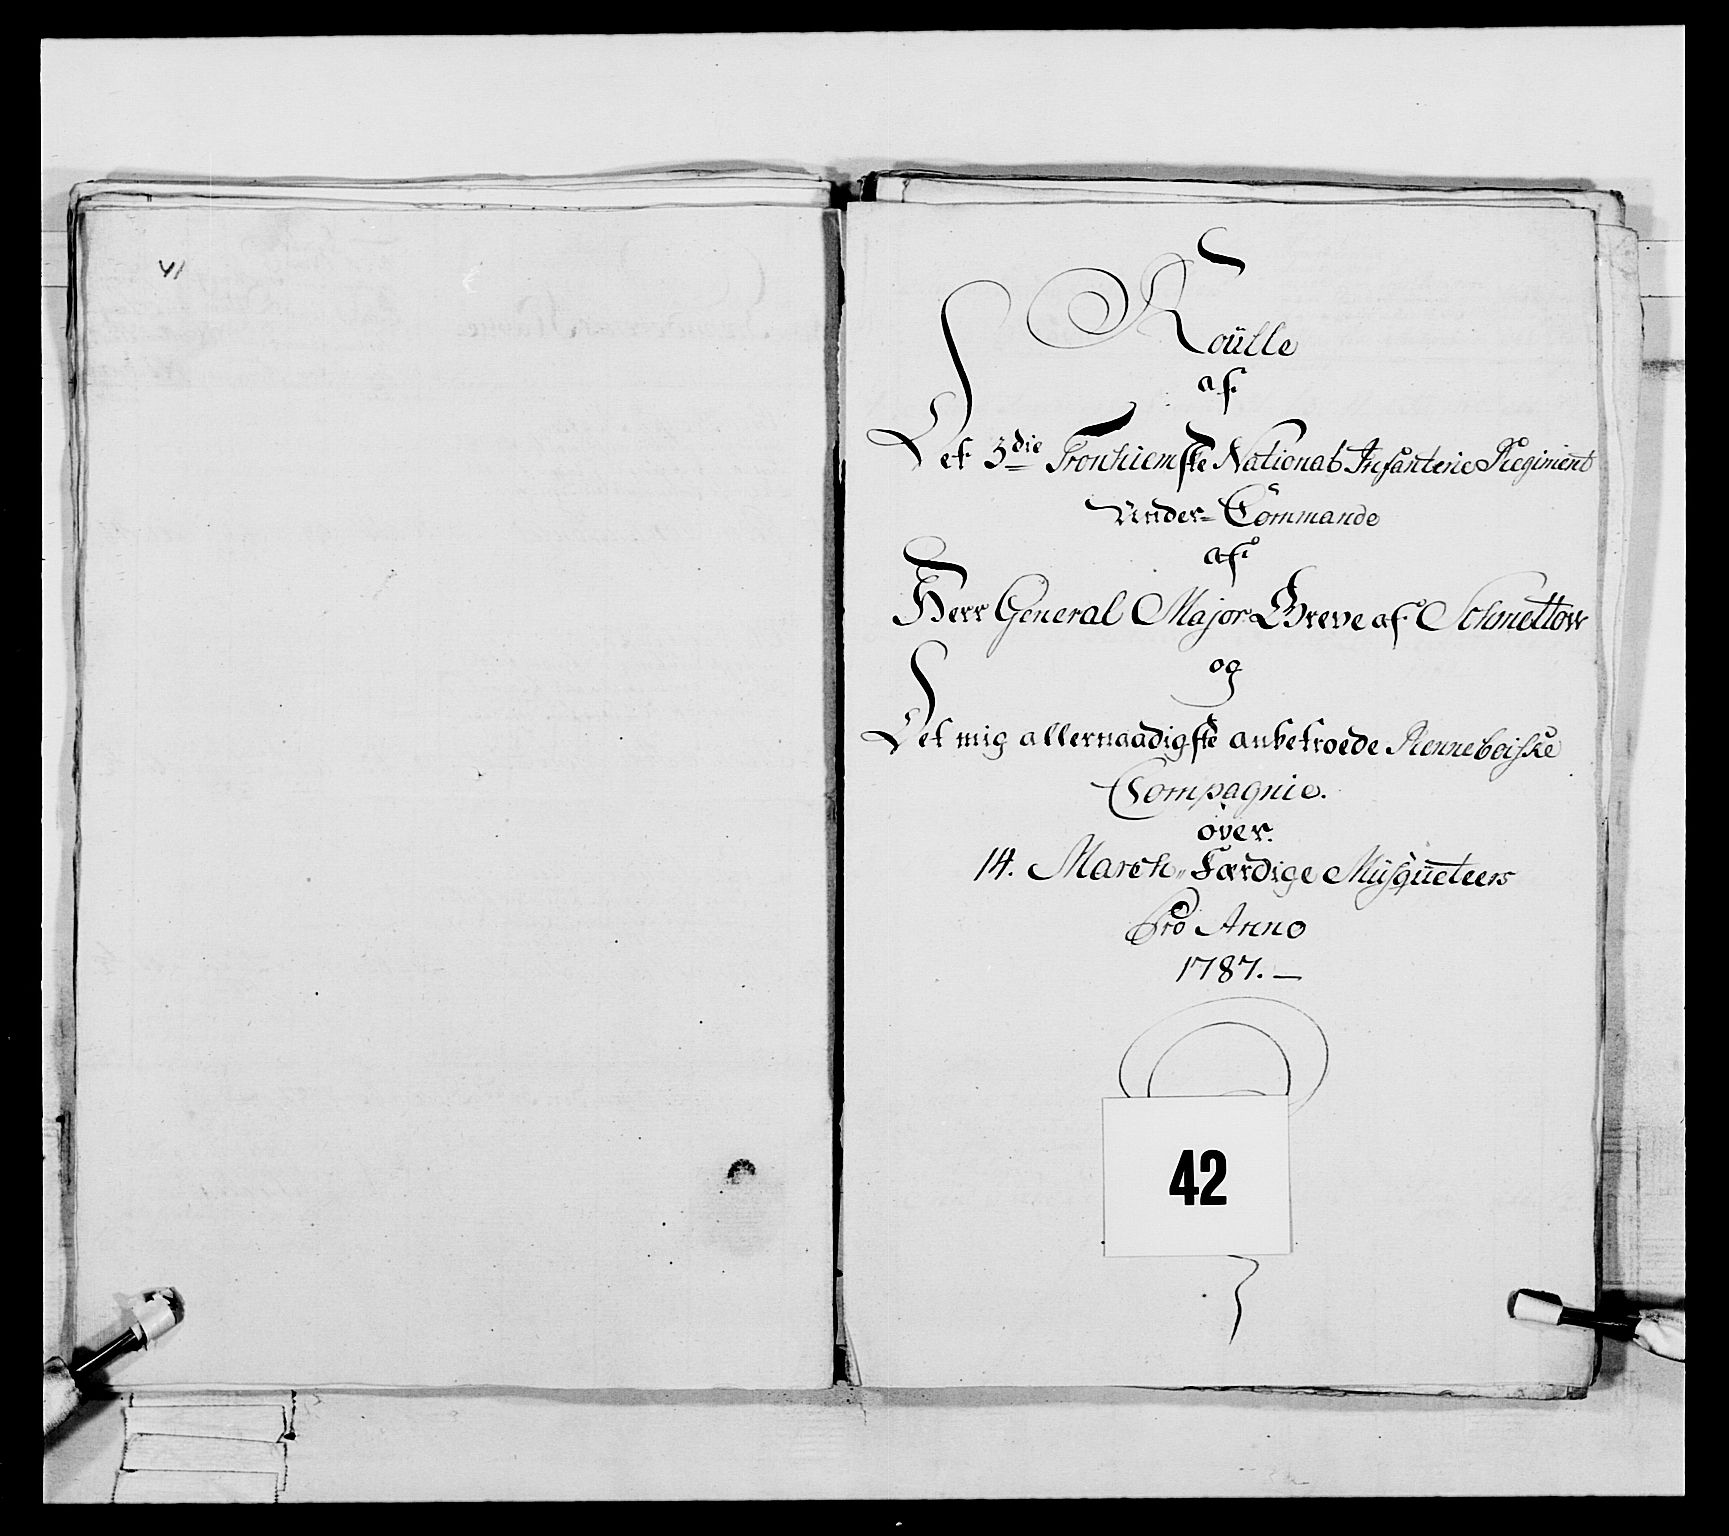 41
Roülle
af
Det 3die Tronhiemske National Infanterie Regiment
Under= Commando
af
Herr General Major Greve af Schmettow
og
Det mig allernaadigste anbetroede Renneboiske
Compagnie.
over.
14. March,, Færdige Müsqueteers
Pro Anno
1787. —
42